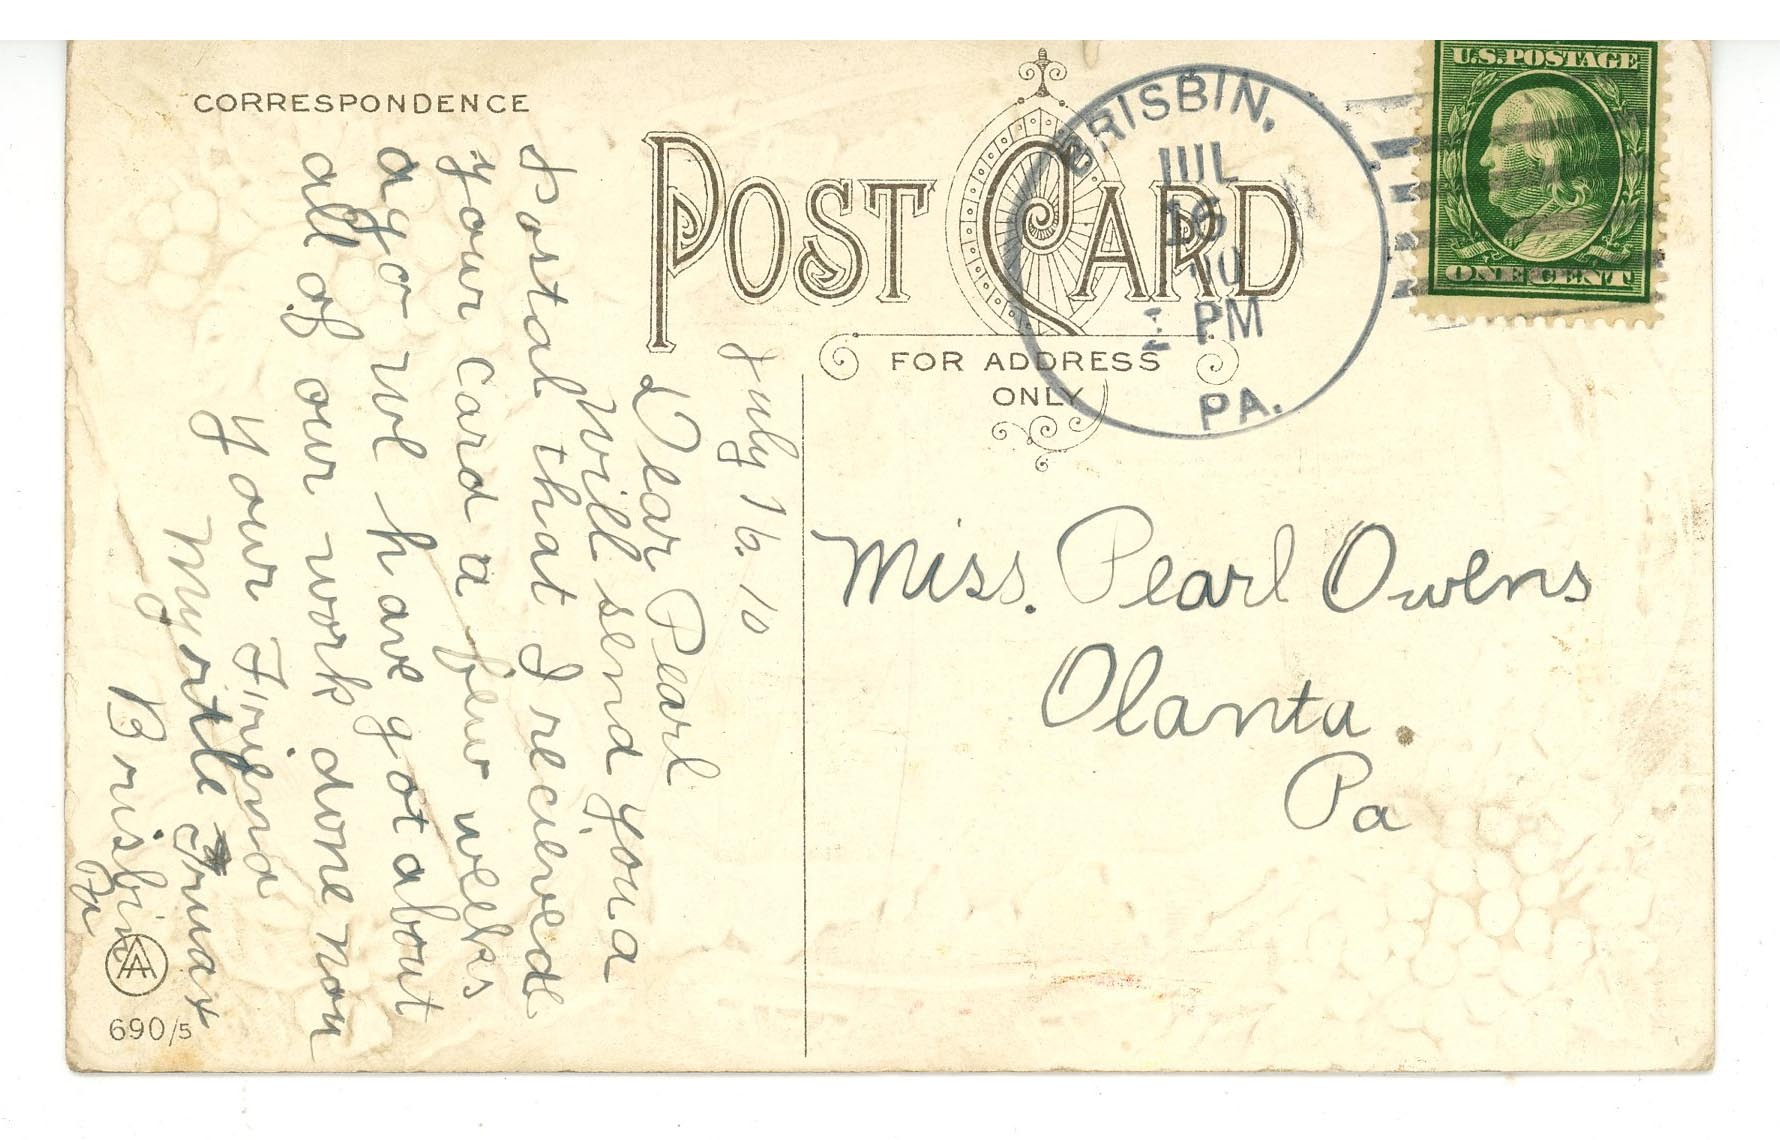 CORRESPONDENCE
POST CARD
FOR ADDRESS
ONLY
BRISBIN,
JUL
16
PM
PA.
U.S. POSTAGE
ONE CENT
July 16. 10
Dear Pearl
Will send you a
postal that I recieved
your card a few weeks
ago we have got about
all of our work done now
Your Friend
Myrtle Truax
Brisbin
Pa
Miss. Pearl Owens
Olanta.
Pa
AA
690/5